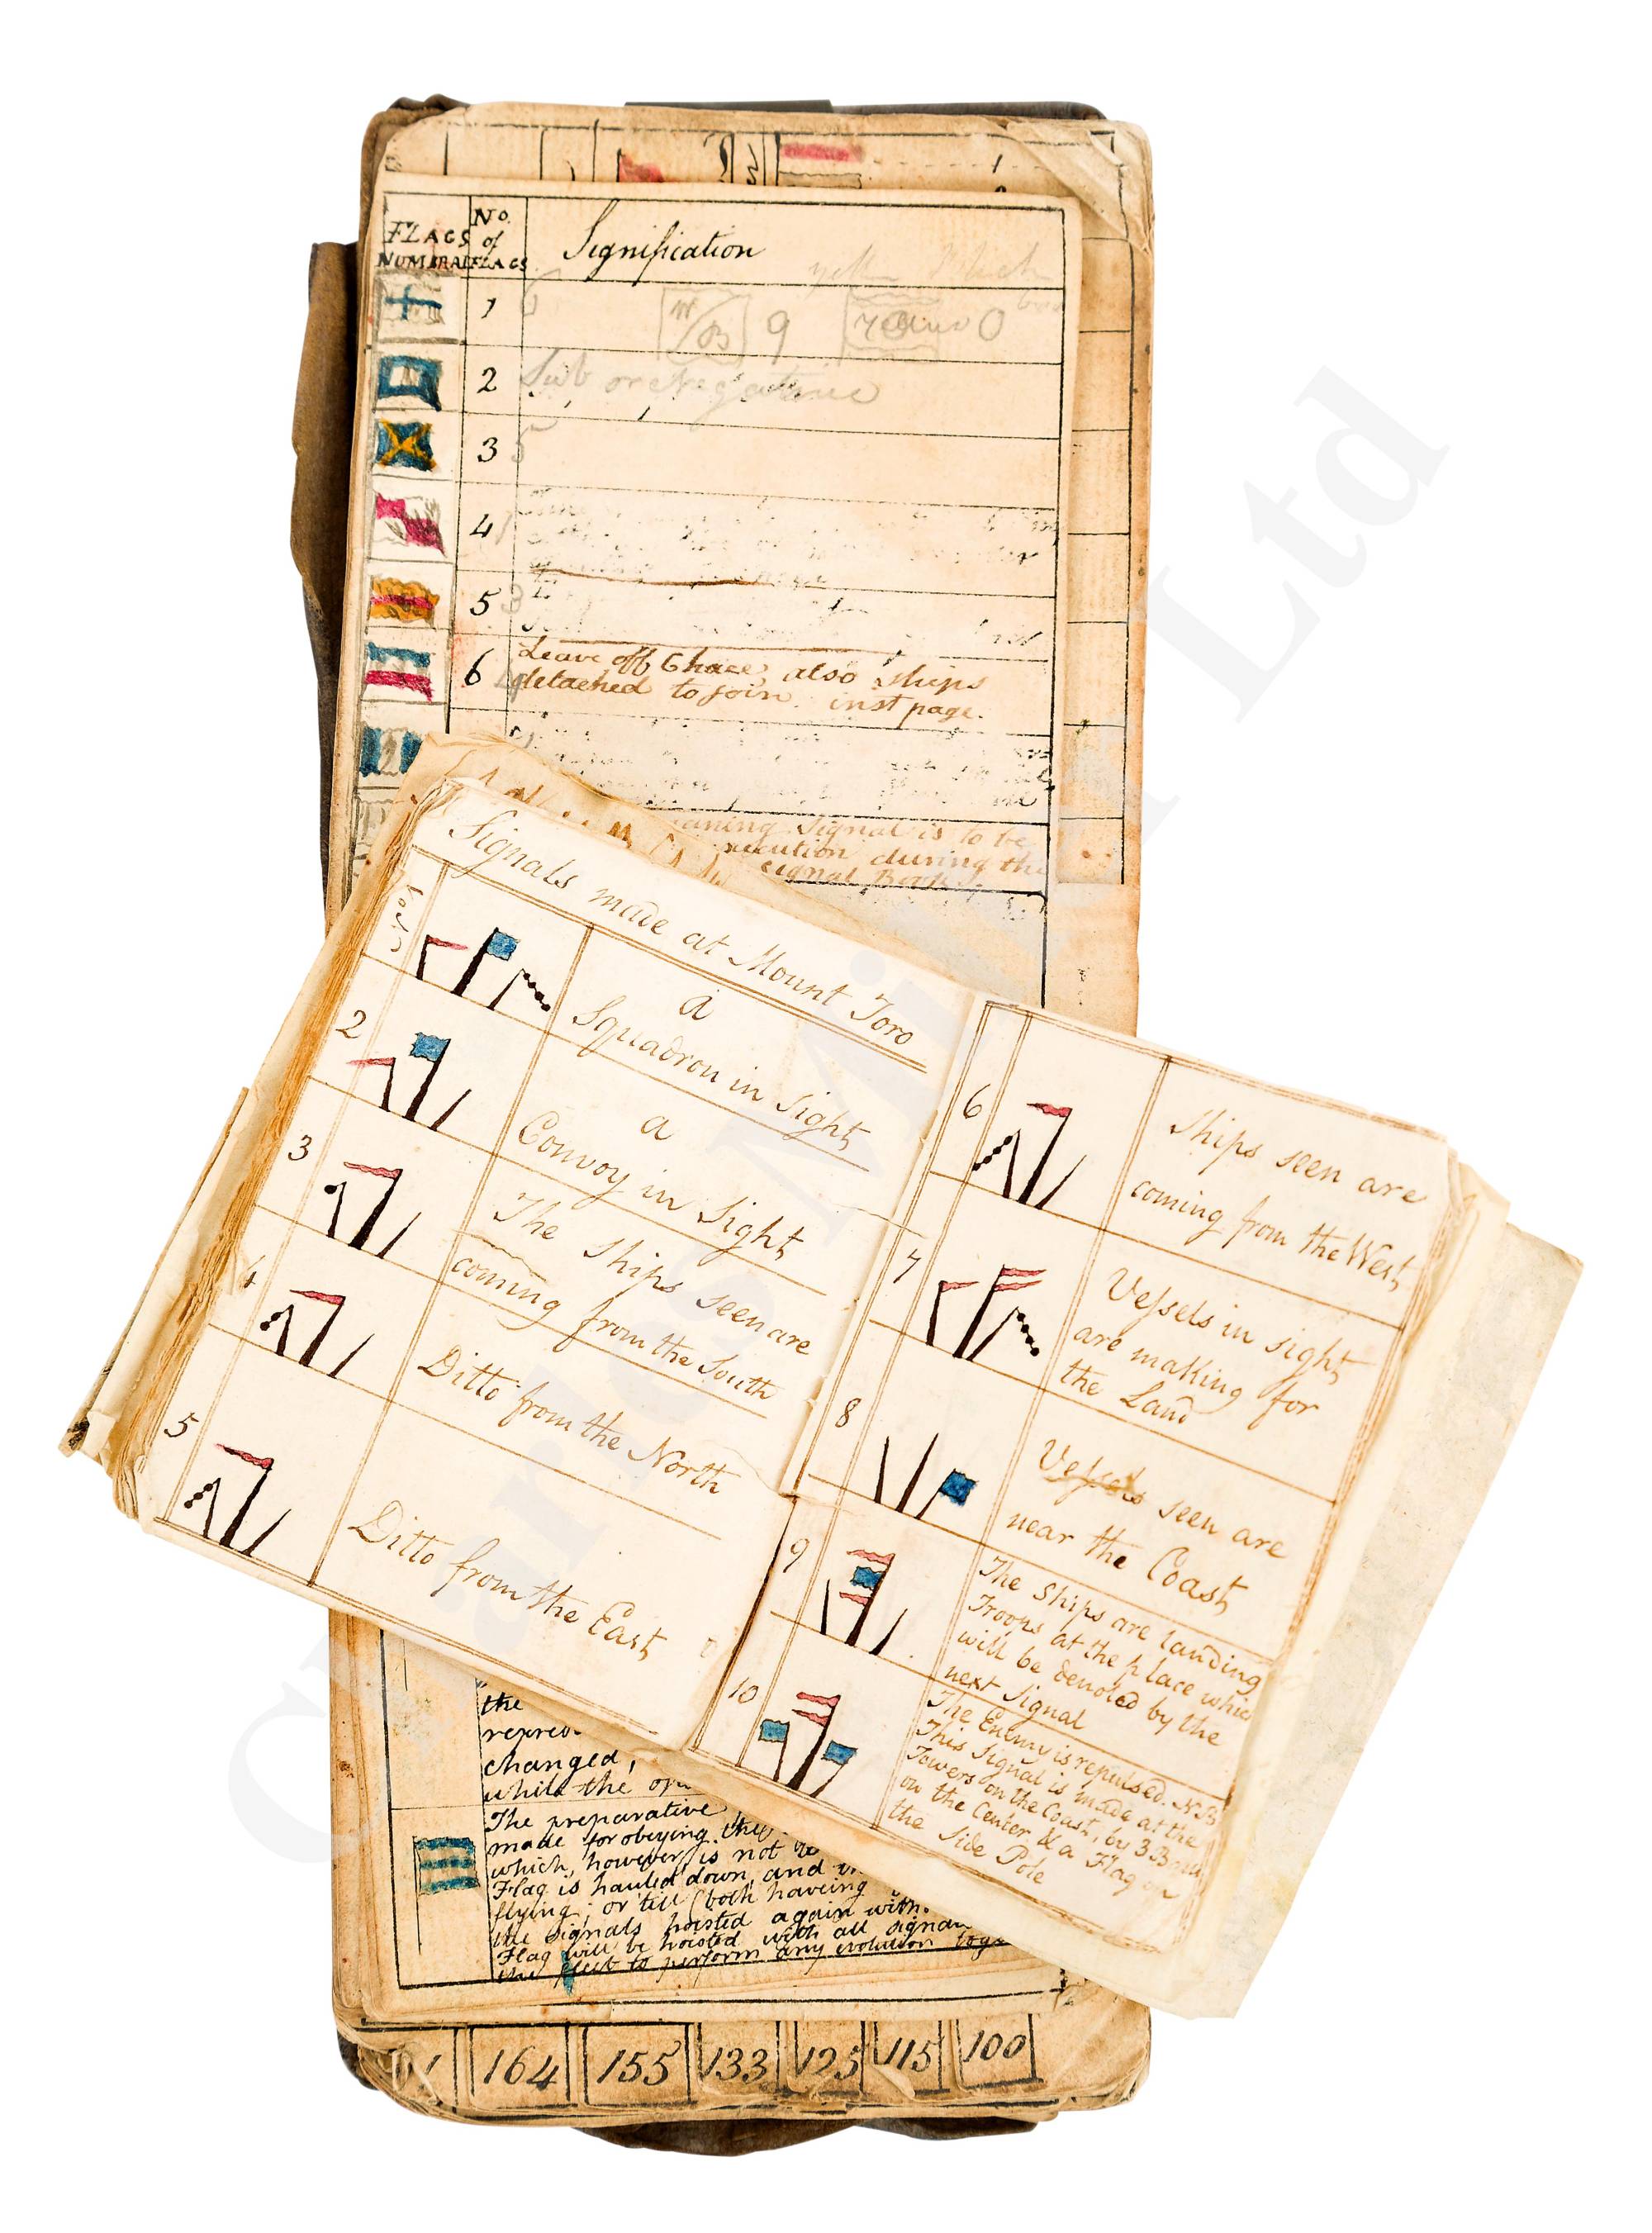 FLAGS
NUMBRAL
No.
of
FLAGS
Signification
yellow Black
1
6
W/B 9 Yellow 0
2
Sub or Negative
3
5
4
5
3
6
Leave off Chace, also ships
detached to join. inst page.
2
meaning Signal is to be
execution during the
signal Books.
Signals made at Mount Toro
No 1
a
Squadron in Sight
2
a
Convoy in Sight
3
The Ships seen are
coming from the South
4
Ditto from the North
5
Ditto from the East
6
Ships seen are
coming from the West
7
Vessels in sight
are making for
the Land
8
Vessels seen are
near the Coast
9
The Ships are landing
Troops at the place which
will be denoted by the
next Signal
10
The Enemy is repulsed. NB
This Signal is made at the
Towers on the Coast, by 3
on the Center & a Flag on
the Side Pole
the
changed,
while the
The preparative
made for obeying
which, however, is not
Flag is hauled down, and
flying; or till (both haveing
the signals hoisted again with
Flag will be hoisted with all signals
the fleet to perform any evolution
164 155 133 125 115 100
Charles Miller Ltd